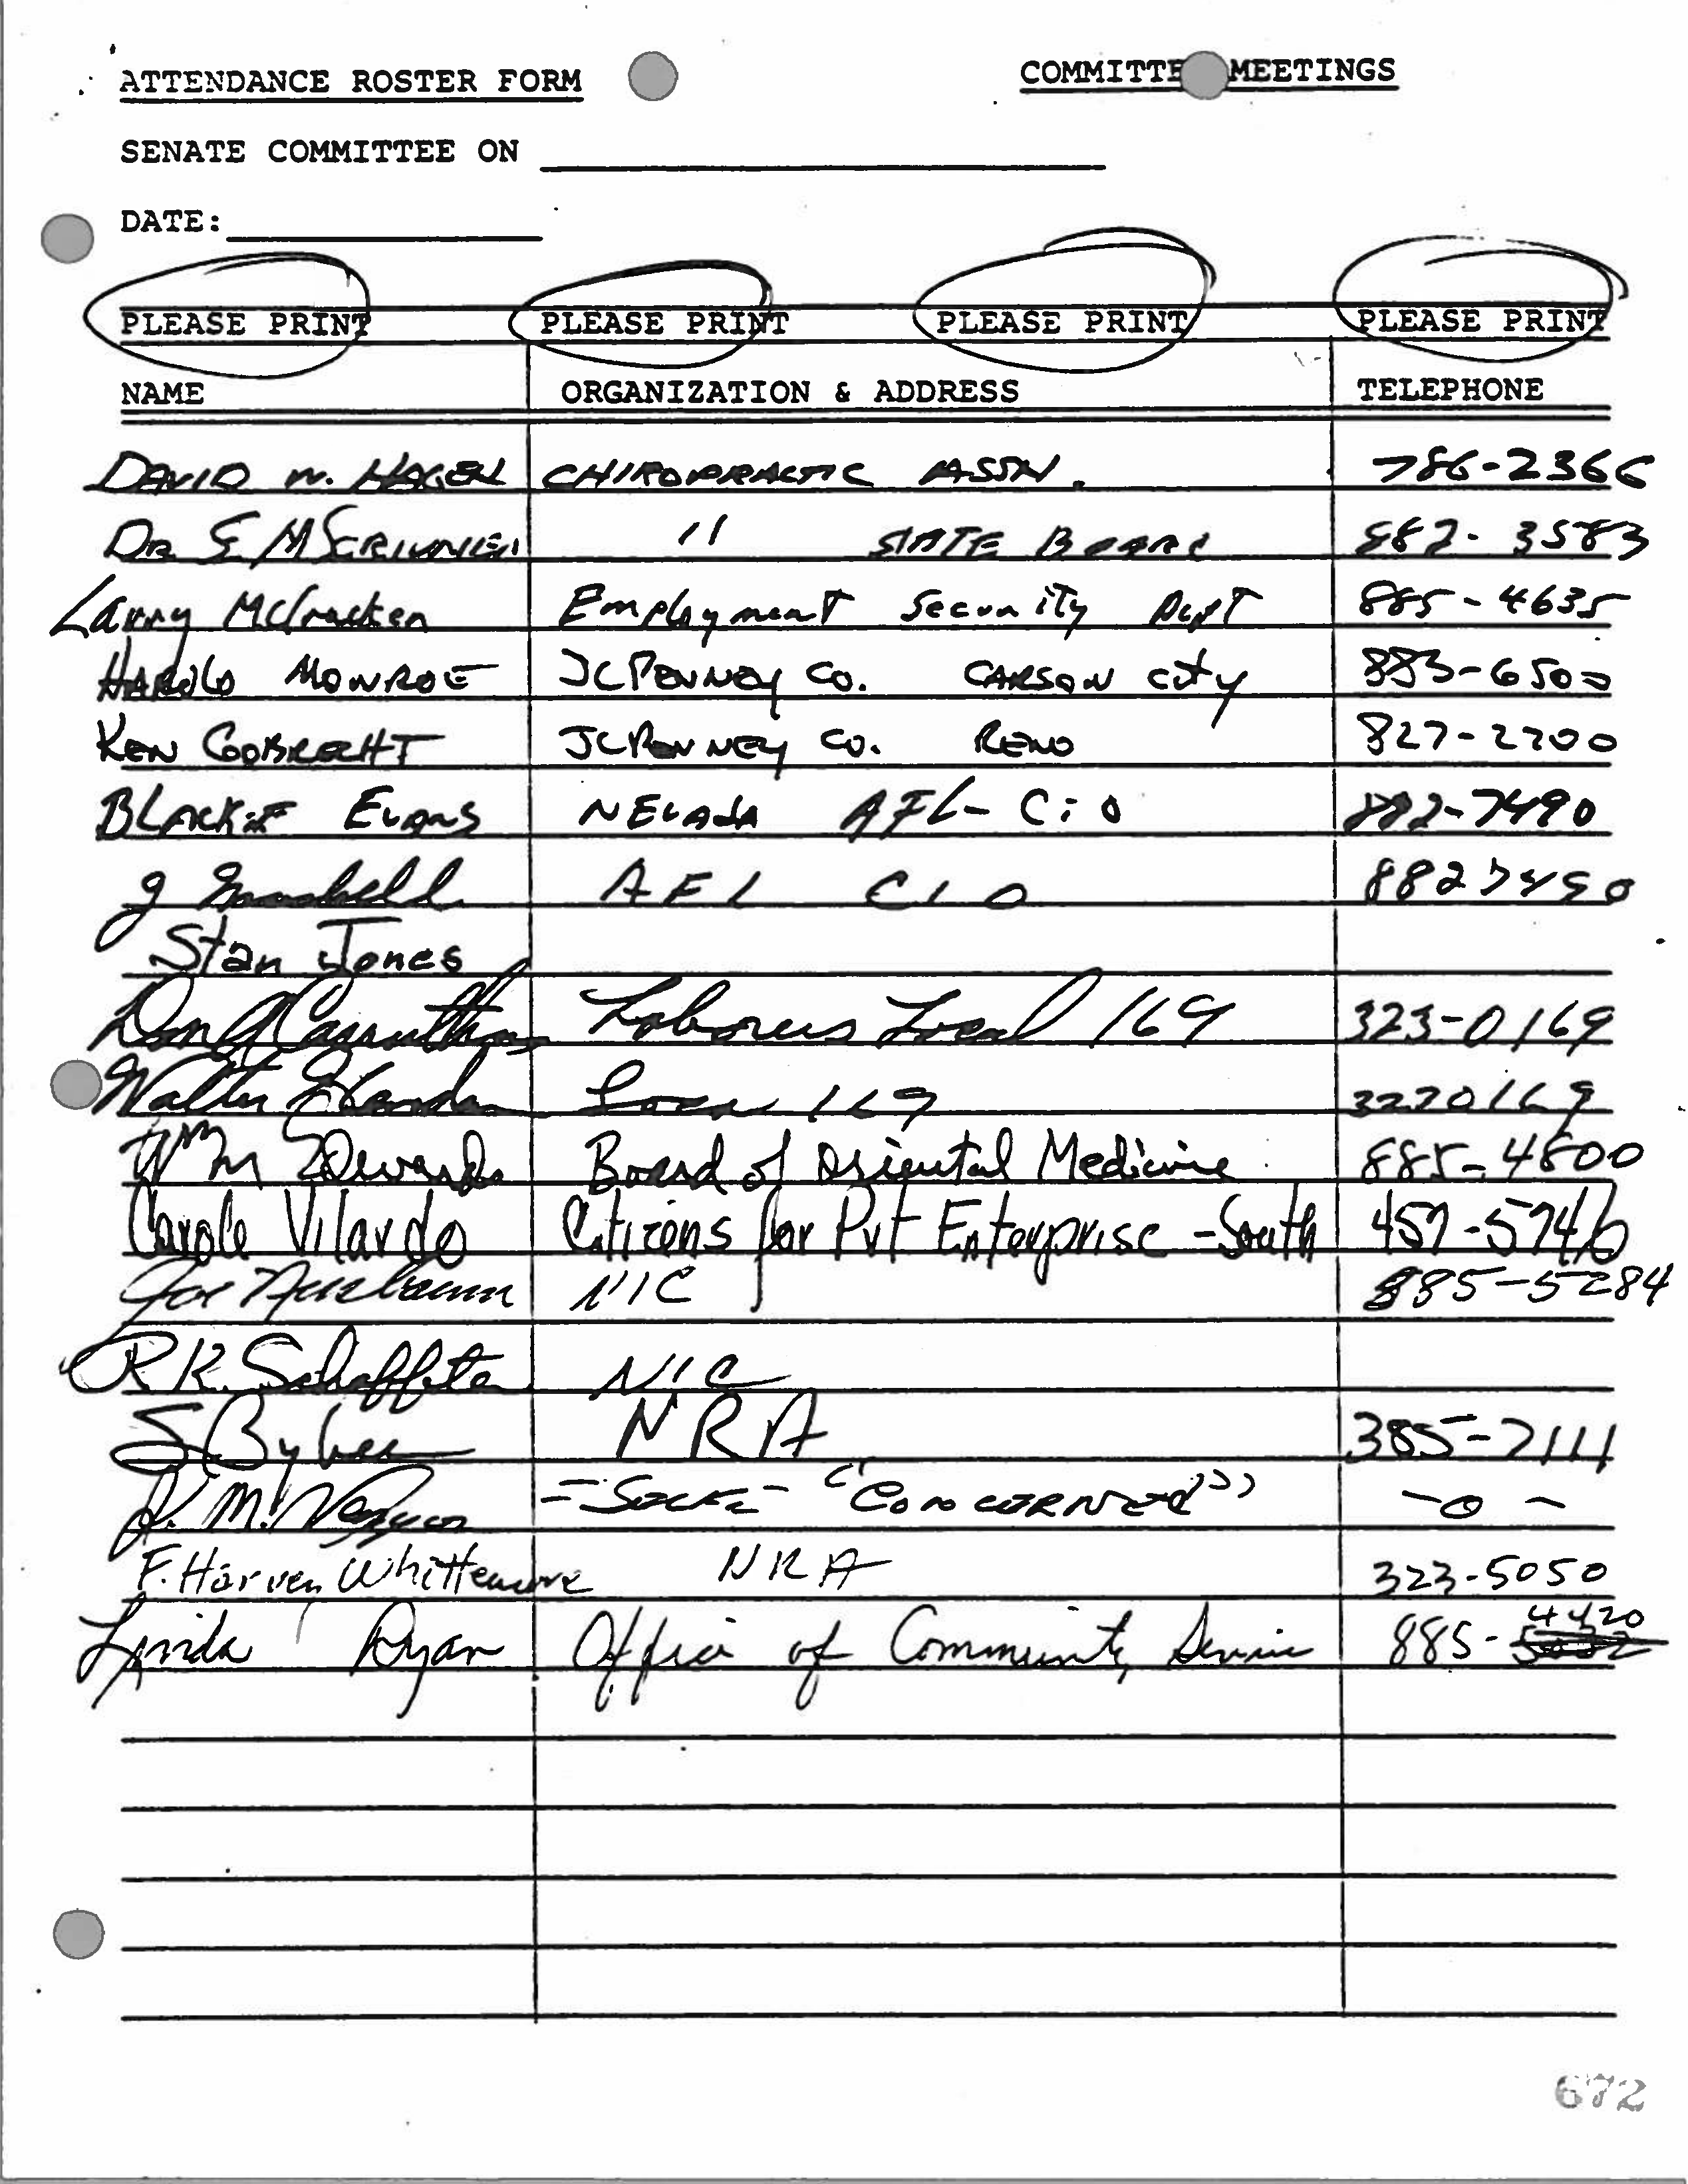 ATTENDANCE ROSTER FORM COMMITTEE MEETINGS
SENATE COMMITTEE ON
DATE:
PLEASE PRINT PLEASE PRINT PLEASE PRINT PLEASE PRINT
NAME ORGANIZATION & ADDRESS TELEPHONE
DAVID W. HAGEN CHIROPRACTIC ASSN. 786-2366
DR S M SCRIVNER " STATE BOARD 882-3583
Larry McCracken Employment Security Dept 885-4635
HAROLD MONROE JCPENNEY CO. CARSON city 883-6500
KEN GOBRECHT JCPENNEY CO. RENO 827-2200
BLACKIE Evans NEVADA AFL-CiO 882-7490
J AFL CIO 8827490
Stan Jones
Don Carruthers Laborers Local 169 323-0169
Walter Local 169 3230169
Wm Edwards Board of Oriental Medicine 885-4800
Carole Vilardo Citizens for Pvt Enterprise - South 457-5746
Joe Nusbaum NIC 885-5284
R R. NIC
S NRA 385-7111
M. = - "CONCERNED" -0-
F. Harvey Whittemore NRA 323-5050
Linda Ryan Office of Community Service 885- 4420
672